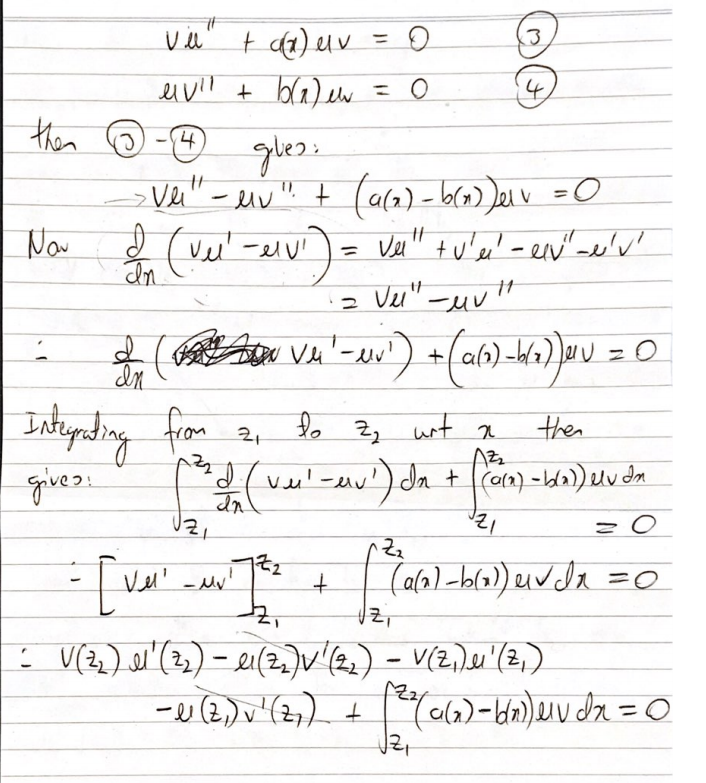 vu'' + a(x)uv = 0 ③
uv'' + b(x)uv = 0 ④
then ③ - ④ gives:
→ vu'' - uv'' + (a(x) - b(x))uv = 0
Now d/dx (vu' - uv') = vu'' + v'u' - uv'' - u'v'
= vu'' - uv''
∴ d/dx (vu' - uv') + (a(x) - b(x))uv = 0
Integrating from z₁ to z₂ wrt x then
gives: ∫_{z₁}^{z₂} d/dx (vu' - uv') dx + ∫_{z₁}^{z₂} (a(x) - b(x))uv dx
= 0
∴ [vu' - uv']_{z₁}^{z₂} + ∫_{z₁}^{z₂} (a(x) - b(x))uv dx = 0
∴ v(z₂)u'(z₂) - u(z₂)v'(z₂) - v(z₁)u'(z₁)
- u(z₁)v'(z₁) + ∫_{z₁}^{z₂} (a(x) - b(x))uv dx = 0